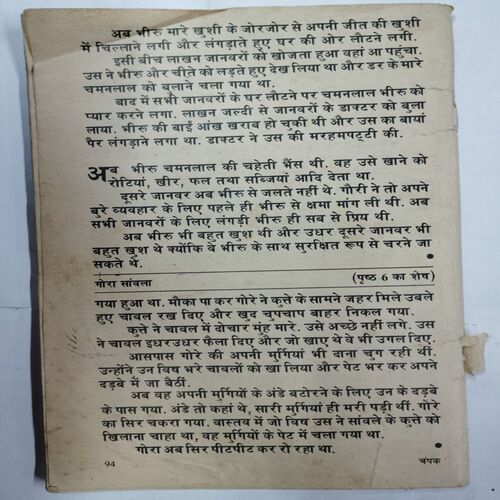 अब भीरु मारे खुशी के जोरजोर से अपनी जीत की खुशी
में चिल्लाने लगी और लंगड़ाते हुए घर की ओर लौटने लगी.
इसी बीच लाखन जानवरों को खोजता हुआ वहां आ पहुंचा.
उस ने भीरु और चीते को लड़ते हुए देख लिया था और डर के मारे
चमनलाल को बुलाने चला गया था.
बाद में सभी जानवरों के घर लौटने पर चमनलाल भीरु को
प्यार करने लगा. लाखन जल्दी से जानवरों के डाक्टर को बुला
लाया. भीरु की बाईं आंख खराब हो चुकी थी और उस का बायां
पैर लंगड़ाने लगा था. डाक्टर ने उस की मरहमपट्टी की.
अब भीरु चमनलाल की चहेती भैंस थी. वह उसे खाने को
रोटियां, खीर, फल तथा सब्जियां आदि देता था.
दूसरे जानवर अब भीरु से जलते नहीं थे. गौरी ने तो अपने
बुरे व्यवहार के लिए पहले ही भीरु से क्षमा मांग ली थी. अब
सभी जानवरों के लिए लंगड़ी भीरु ही सब से प्रिय थी.
अब भीरु भी बहुत खुश थी और उधर दूसरे जानवर भी
बहुत खुश थे क्योंकि वे भीरु के साथ सुरक्षित रूप से चरने जा
सकते थे.
गोरा सांवला (पृष्ठ 6 का शेष)
गया हुआ था. मौका पा कर गोरे ने कुत्ते के सामने जहर मिले उबले
हुए चावल रख दिए और खुद चुपचाप बाहर निकल गया.
कुत्ते ने चावल में दोचार मुंह मारे. उसे अच्छे नहीं लगे. उस
ने चावल इधरउधर फैला दिए और जो खाए थे वे भी उगल दिए.
आसपास गोरे की अपनी मुर्गियां भी दाना चुग रही थीं.
उन्होंने उन विष भरे चावलों को खा लिया और पेट भर कर अपने
दड़बे में जा बैठीं.
अब वह अपनी मुर्गियों के अंडे बटोरने के लिए उन के दड़बे
के पास गया. अंडे तो कहां थे, सारी मुर्गियां ही मरी पड़ी थीं. गोरे
का सिर चकरा गया. वास्तव में जो विष उस ने सांवले के कुत्ते को
खिलाना चाहा था, वह मुर्गियों के पेट में चला गया था.
गोरा अब सिर पीटपीट कर रो रहा था.
94 चंपक